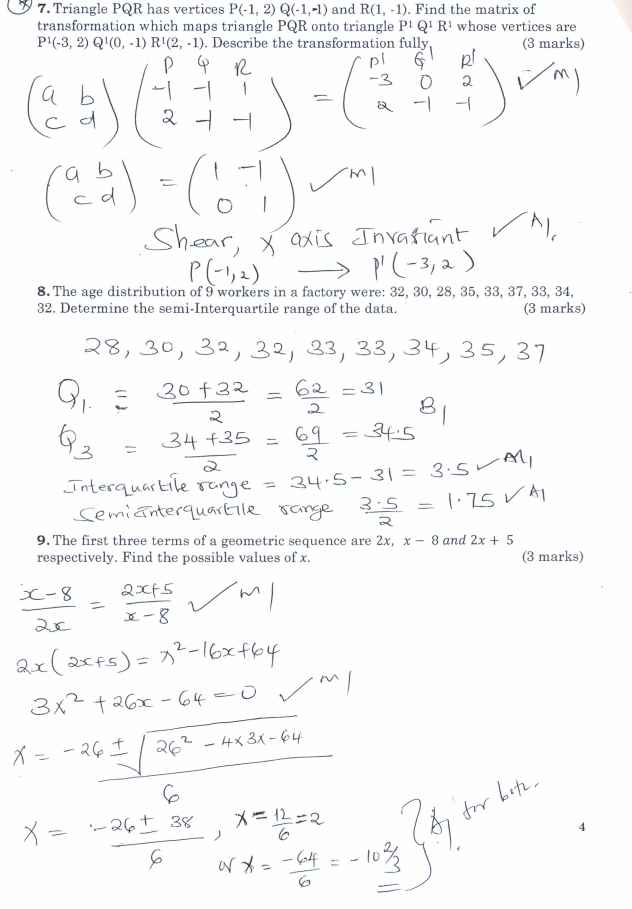 7. Triangle PQR has vertices P(-1, 2) Q(-1,-1) and R(1, -1). Find the matrix of
transformation which maps triangle PQR onto triangle P¹ Q¹ R¹ whose vertices are
P¹(-3, 2) Q¹(0, -1) R¹(2, -1). Describe the transformation fully. (3 marks)
P Q R P¹ Q¹ R¹
(a b) (-1 -1 1) = (-3 0 2) ✓M1
(c d) (2 -1 -1) (2 -1 -1)
(a b) = (1 -1) ✓M1
(c d) (0 1)
Shear, X axis Invariant ✓A1.
P(-1,2) → P¹(-3,2)
8. The age distribution of 9 workers in a factory were: 32, 30, 28, 35, 33, 37, 33, 34,
32. Determine the semi-Interquartile range of the data. (3 marks)
28, 30, 32, 32, 33, 33, 34, 35, 37
Q1. = 30+32/2 = 62/2 = 31 B1
Q3 = 34+35/2 = 69/2 = 34.5
Interquartile range = 34.5 - 31 = 3.5 ✓M1
Semi interquartile range 3.5/2 = 1.75 ✓A1
9. The first three terms of a geometric sequence are 2x, x - 8 and 2x + 5
respectively. Find the possible values of x. (3 marks)
x-8/2x = 2x+5/x-8 ✓M1
2x(2x+5) = x²-16x+64
3x² + 26x - 64 = 0 ✓M1
x = -26 ± √26² - 4x3x-64/6
x = -26 ± 38/6 , x = 12/6 = 2
or x = -64/6 = -10 2/3 } A1. for both.
4